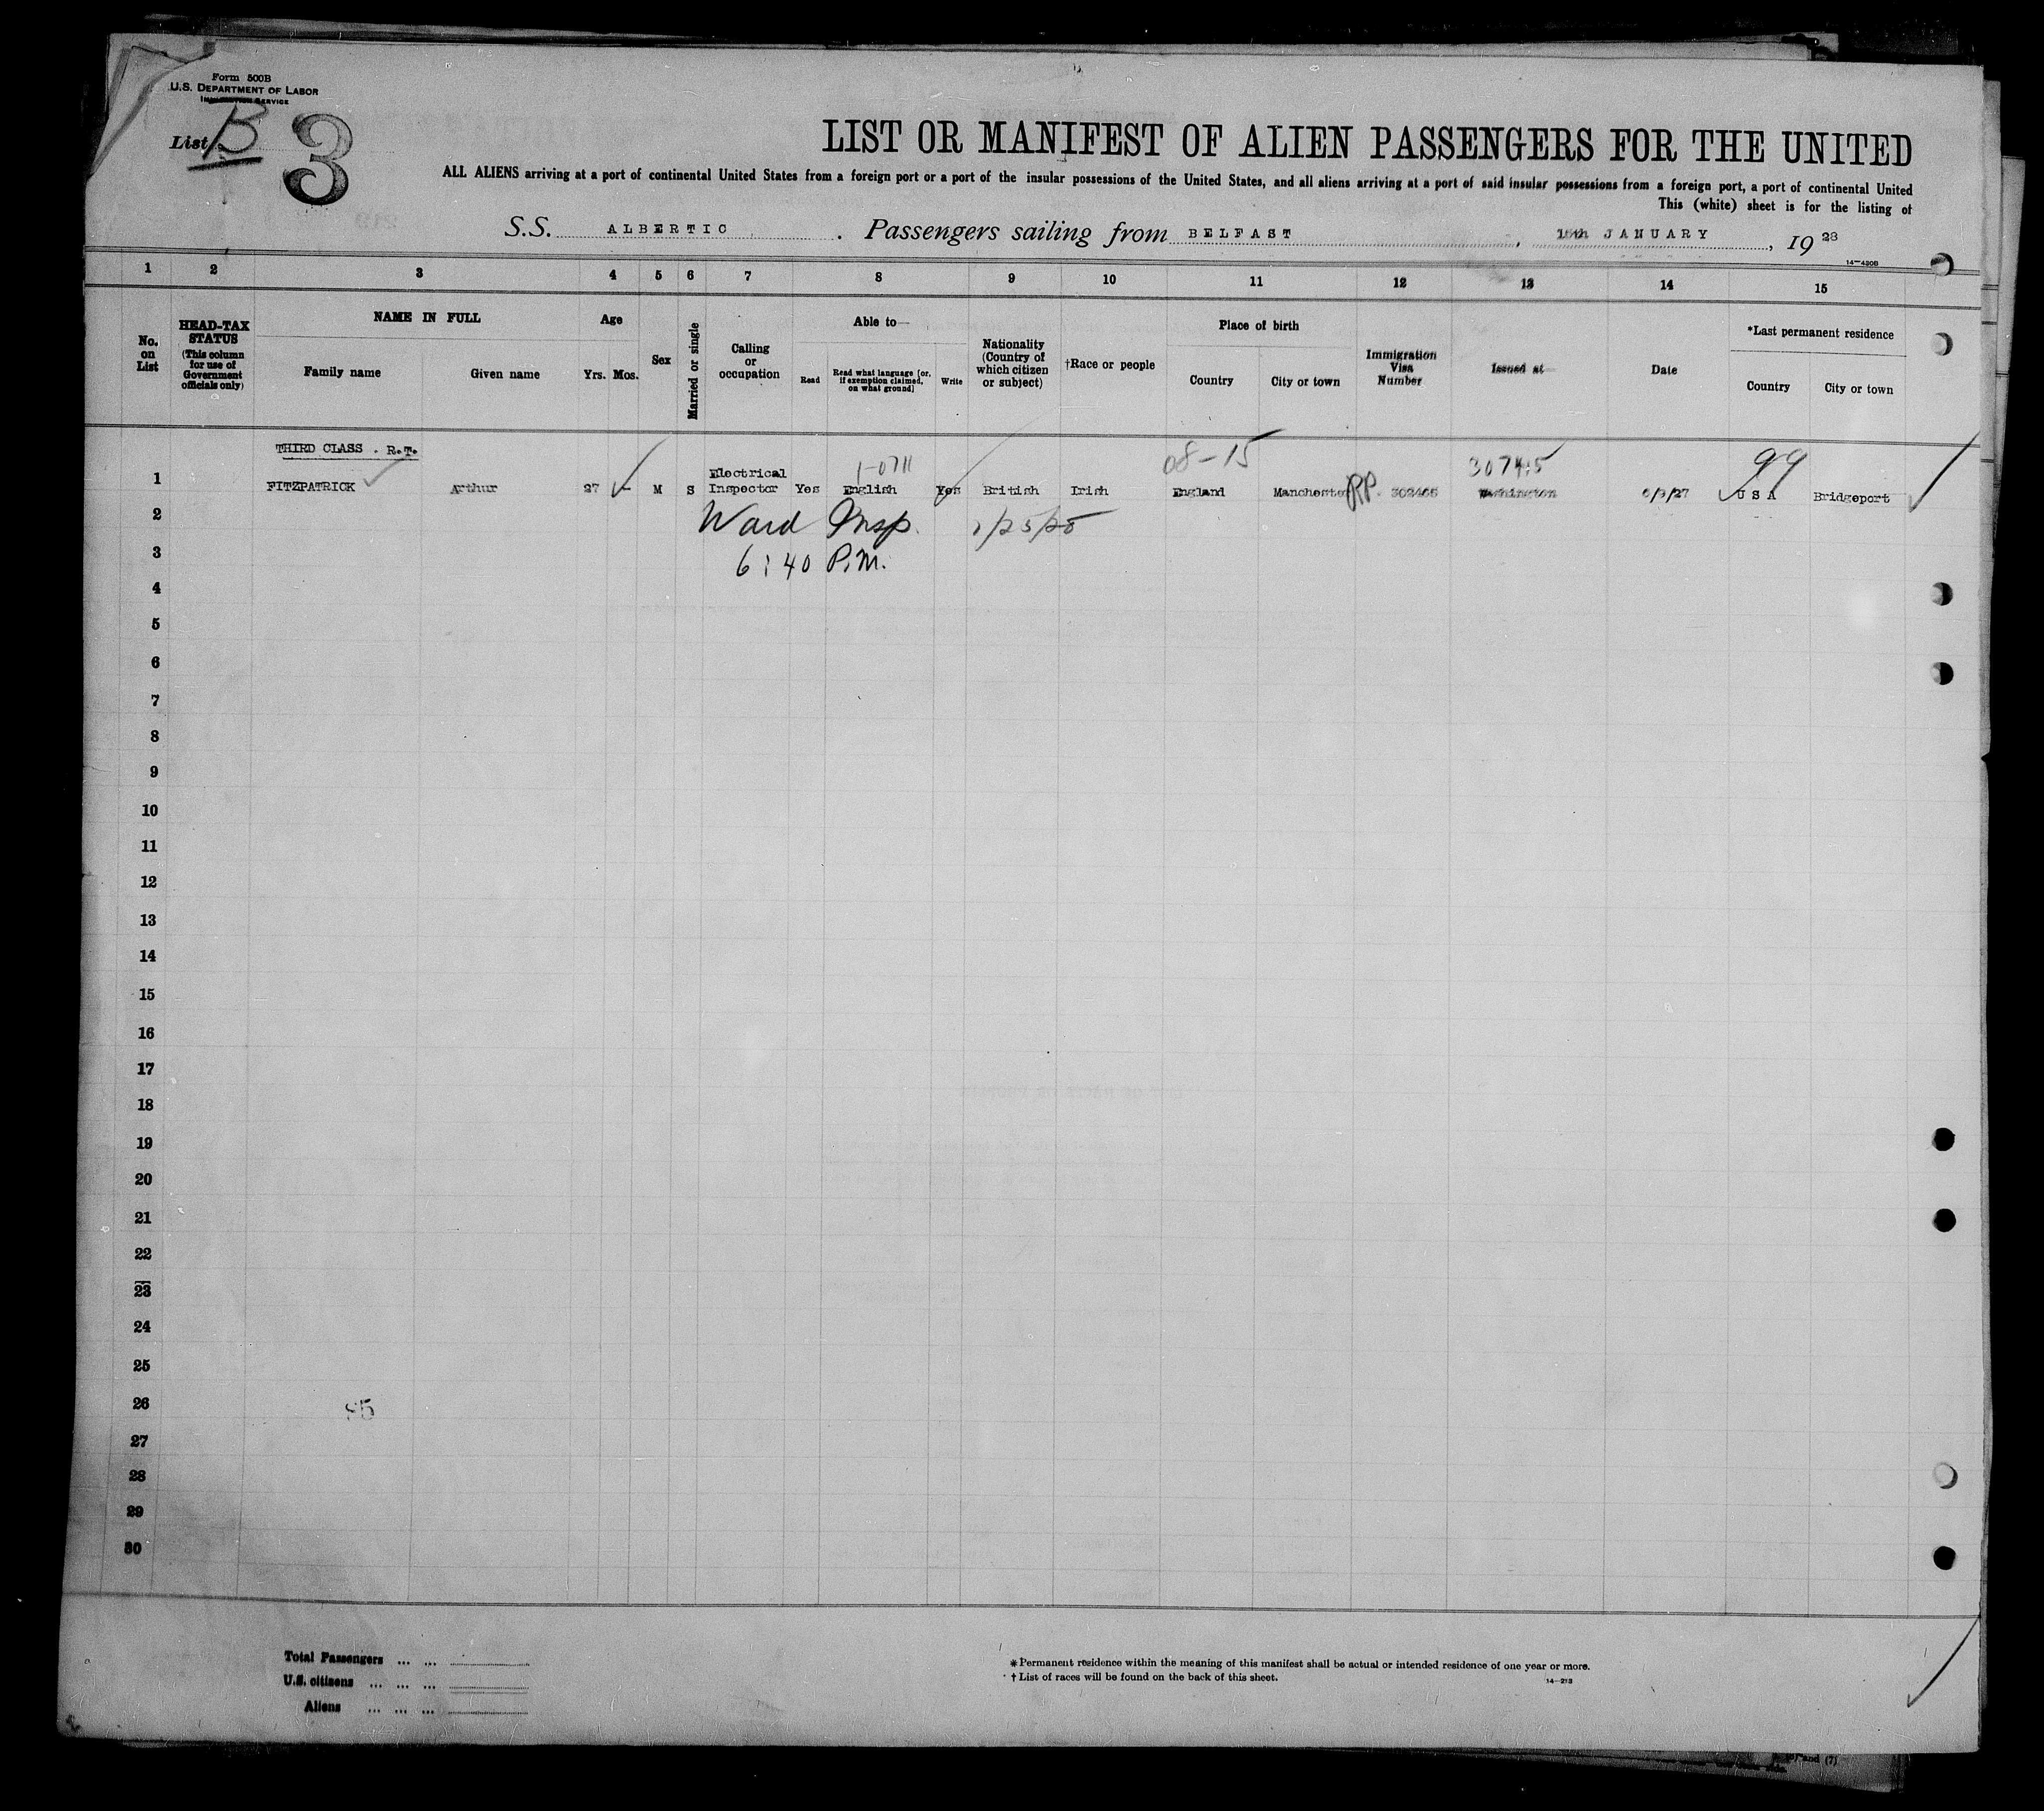 Form 500B
U.S. DEPARTMENT OF LABOR
IMMIGRATION SERVICE
List B 3
LIST OR MANIFEST OF ALIEN PASSENGERS FOR THE UNITED
ALL ALIENS arriving at a port of continental United States from a foreign port or a port of the insular possessions of the United States, and all aliens arriving at a port of said insular possessions from a foreign port, a port of continental United
This (white) sheet is for the listing of
S.S. ALBERTIC . Passengers sailing from BELFAST , JANUARY , 19 28
14—420B
1 2 3 4 5 6 7 8 9 10 11 12 13 14 15
No. on List
HEAD-TAX STATUS (This column for use of Government officials only)
NAME IN FULL
Family name Given name
Age
Yrs. Mos.
Sex
Married or single
Calling or occupation
Able to—
Read
Read what language [or, if exemption claimed, on what ground]
Write
Nationality (Country of which citizen or subject)
†Race or people
Place of birth
Country City or town
Immigration Visa Number
Issued at—
Date
*Last permanent residence
Country City or town
THIRD CLASS . R.T.
1-0711 08-15 30745 99
1 FITZPATRICK Arthur 27 – M S Electrical Inspector Yes English Yes British Irish England Manchester RP. 302465 Washington 6/9/27 U S A Bridgeport
2 Ward Insp. 1/25/28
3 6:40 P.M.
4
5
6
7
8
9
10
11
12
13
14
15
16
17
18
19
20
21
22
23
24
25
26
27
28
29
30
Total Passengers ... ...
U.S. citizens ... ... ...
Aliens ... ... ...
* Permanent residence within the meaning of this manifest shall be actual or intended residence of one year or more.
† List of races will be found on the back of this sheet.
14—213
and (7)